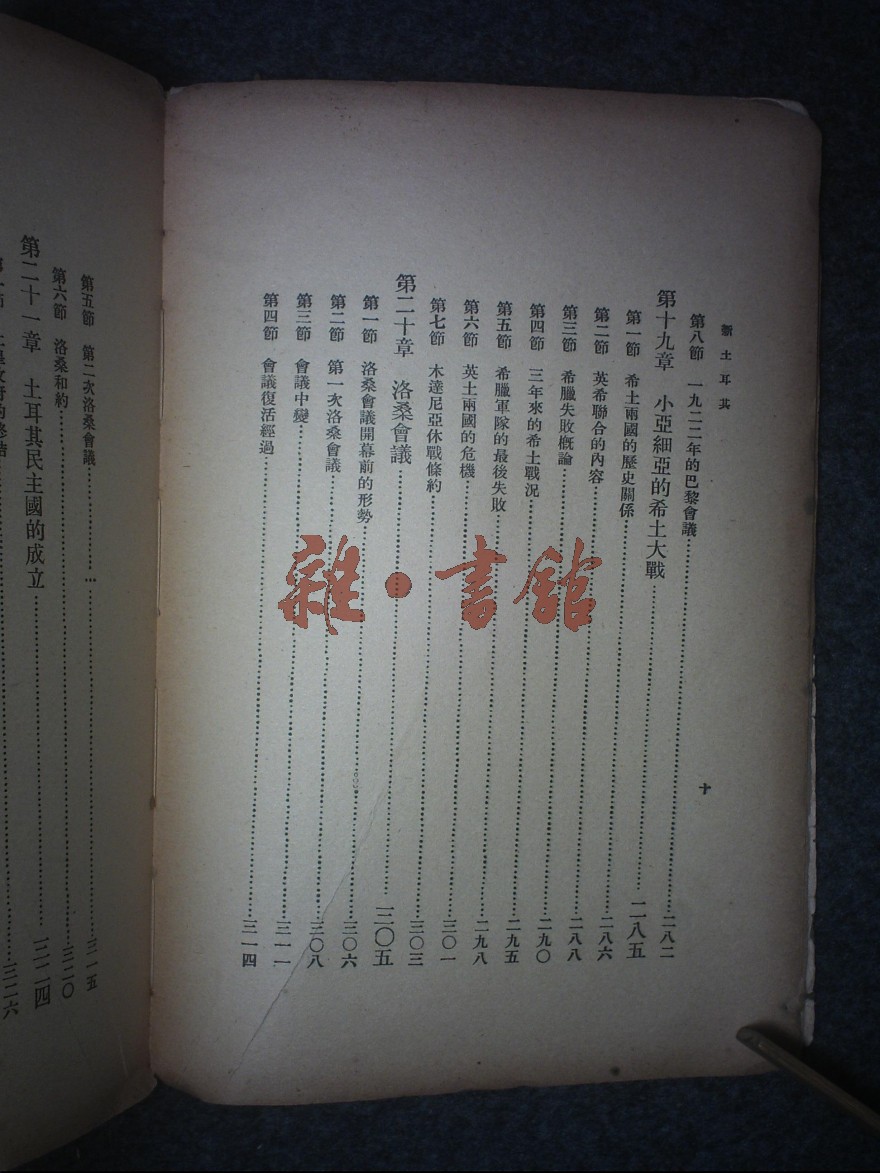 新土耳其
十
第八節 一九二二年的巴黎會議……二八二
第十九章 小亞細亞的希土大戰……二八五
第一節 希土兩國的歷史關係……二八六
第二節 英希聯合的內容……二八八
第三節 希臘失敗概論……二九〇
第四節 三年來的希土戰況……二九五
第五節 希臘軍隊的最後失敗……二九八
第六節 英土兩國的危機……三〇一
第七節 木達尼亞休戰條約……三〇三
第二十章 洛桑會議……三〇五
第一節 洛桑會議開幕前的形勢……三〇六
第二節 第一次洛桑會議……三〇八
第三節 會議中變……三一一
第四節 會議復活經過……三一四
第五節 第二次洛桑會議……三一五
第六節 洛桑和約……三二〇
第二十一章 土耳其民主國的成立……三二四
三二六
雜·書館